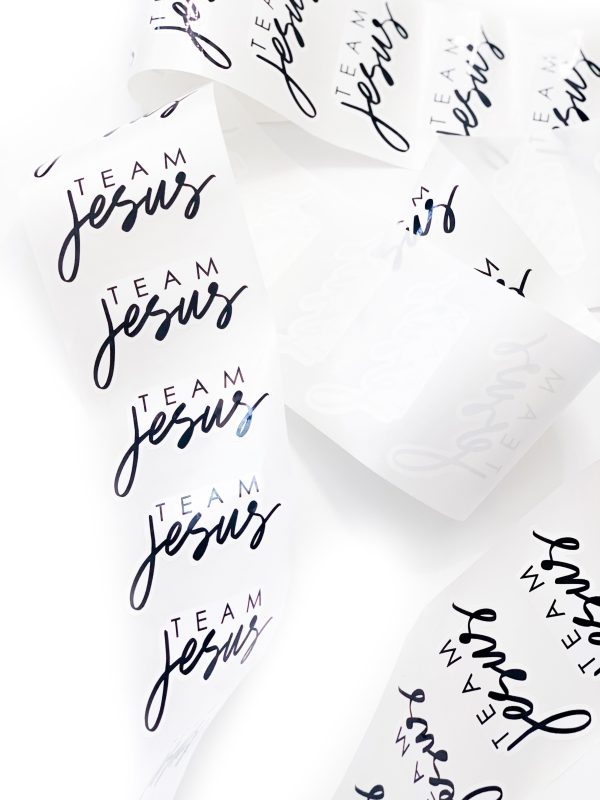 Jesus
TEAM
Jesus
TEAM
Jesus
TEAM
Jesus
TEAM
TEAM
Jesus
TEAM
Jesus
TEAM
Jesus
TEAM
Jesus
TEAM
Jesus
TEAM
Jesus
TEAM
Jesus
TEAM
Jesus